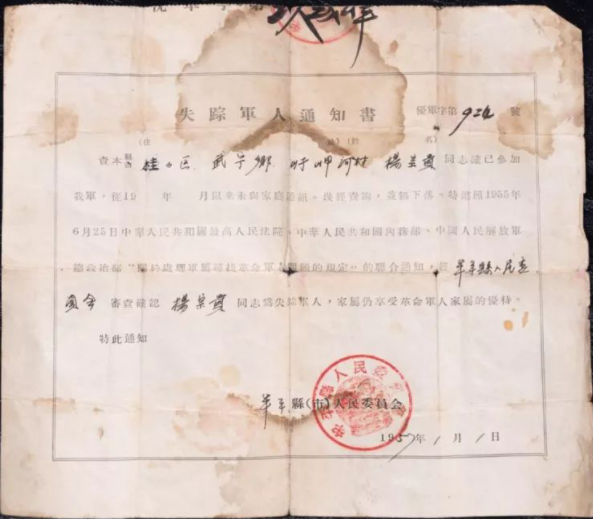 失踪軍人通知書
優軍字第924號
(住 址) (姓 名)
查本縣 區 武芊鄉 河村 楊 貴 同志確已參加
我軍，從19 年 月以來未與家庭通訊，幾經查詢，並無下落。特遵照1955年
6月25日中華人民共和國最高人民法院、中華人民共和國內務部、中國人民解放軍
總政治部“關於處理軍屬尋找革命軍人問題的規定”的聯合通知，經 縣人民委
員會 審查確認 楊 貴 同志為失踪軍人，家屬仍享受革命軍人家屬的優待。
特此通知
縣(市)人民委員會
1957年1月1日